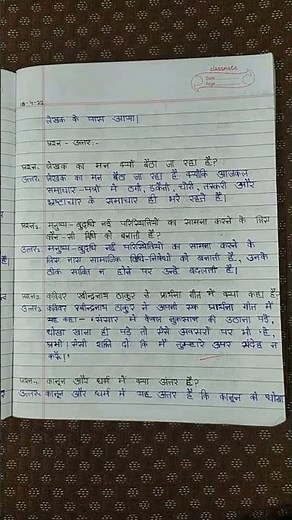 classmate
Date
Page
लेखक के पास आया।
प्रश्न - उत्तर :-
प्रश्न1. लेखक का मन क्यों बैठा जा रहा है?
उत्तर. लेखक का मन बैठा जा रहा है क्योंकि आजकल
समाचार-पत्रों में ठगी, डकैती, चोरी, तस्करी और
भ्रष्टाचार के समाचार ही भरे रहते हैं।
प्रश्न2. मनुष्य-बुद्धि नई परिस्थितियों का सामना करने के लिए
कौन-सी विधि को बनाती है?
उत्तर2. मनुष्य-बुद्धि नई परिस्थितियों का सामना करने के
लिए नए सामाजिक विधि-निषेधों को बनाती है, उनके
ठीक साबित न होने पर उन्हें बदलती है।
कविवर रवीन्द्रनाथ ठाकुर ने प्रार्थना गीत में क्या कहा है?
कविवर रवीन्द्रनाथ ठाकुर ने अपनी एक प्रार्थना गीत में
संसार में केवल नुकसान ही उठाना पड़े,
धोखा खाना ही पड़े तो ऐसे अवसरों पर भी हे,
प्रभो! ऐसी शक्ति दो कि मैं तुम्हारे ऊपर संदेह न
करूँ।
कानून और धर्म में क्या अंतर है?
उत्तर. कानून और धर्म में यह अंतर है कि कानून को धोखा